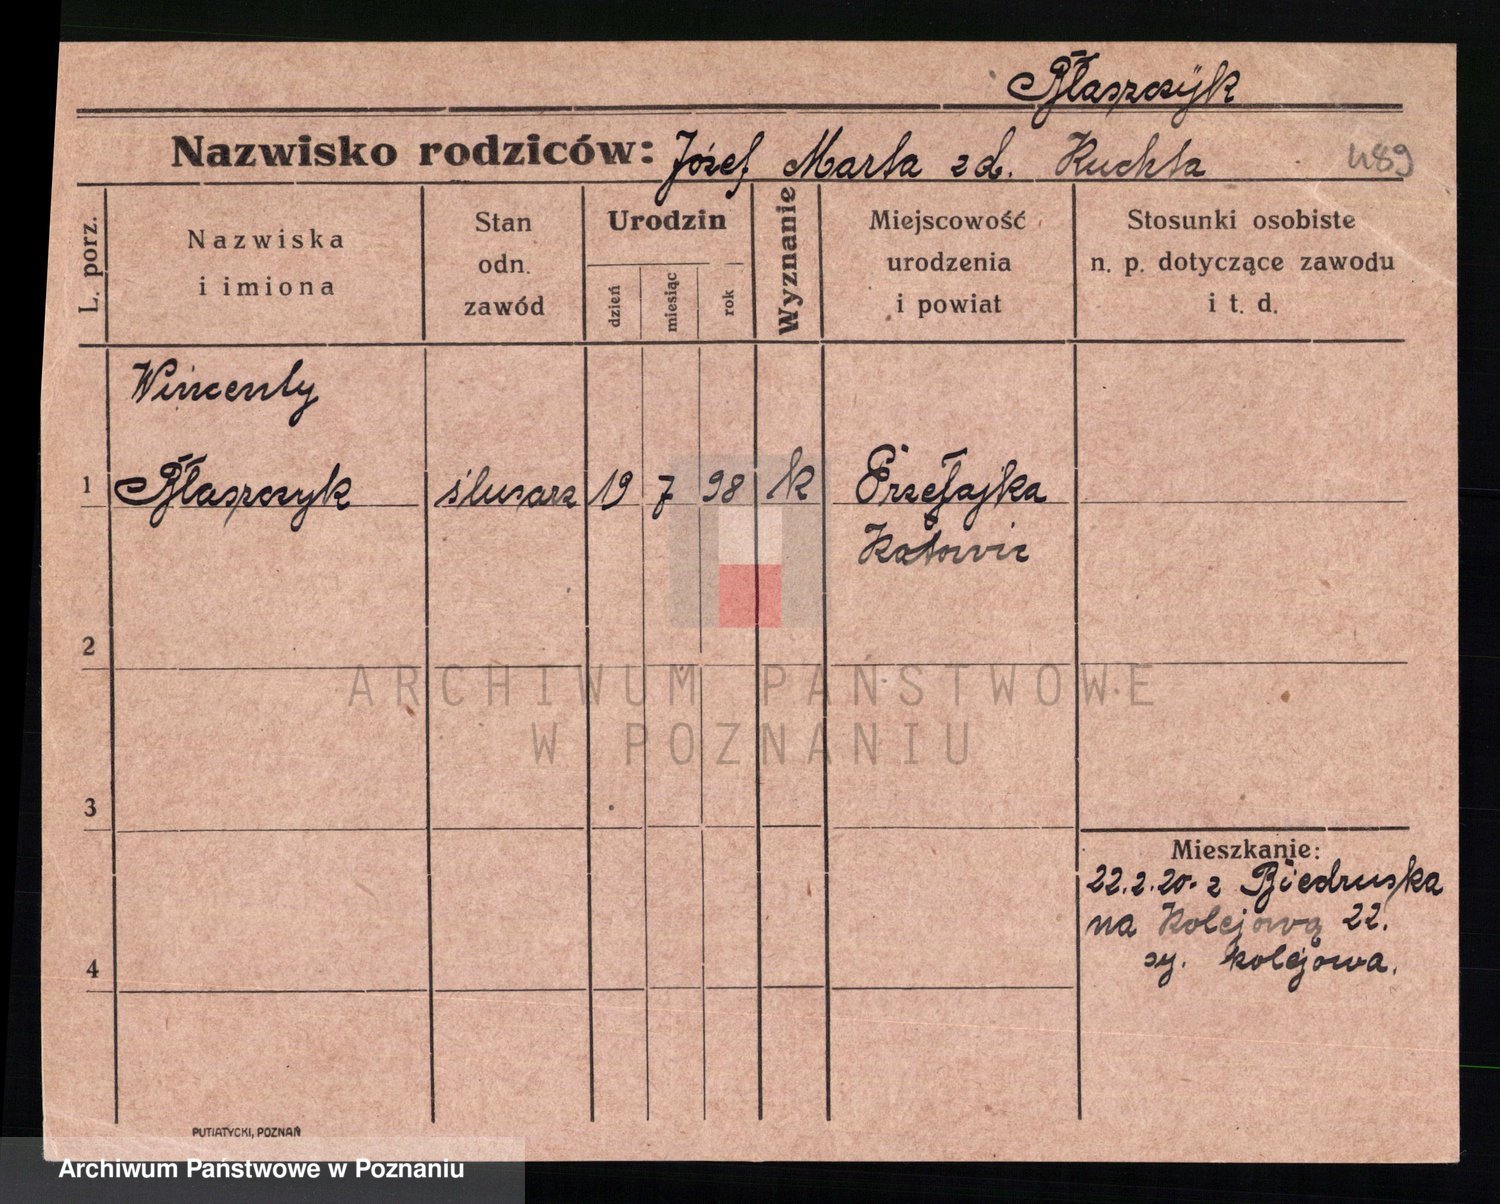 Błaszczyk
Nazwisko rodziców: Józef Marta zd. Kuchta 489
L. porz.
Nazwiska
i imiona
Stan
odn.
zawód
Urodzin
dzień
miesiąc
rok
Wyznanie
Miejscowość
urodzenia
i powiat
Stosunki osobiste
n. p. dotyczące zawodu
i t. d.
Wincenty
1 Błaszczyk ślusarz 19 7 98 k
Katowic
2
ARCHIWUM PAŃSTWOWE
W POZNANIU
3
Mieszkanie:
22.2.20. z Biedruska
na Kolejową 22.
kolejowa.
4
PUTIATYCKI, POZNAŃ
Archiwum Państwowe w Poznaniu